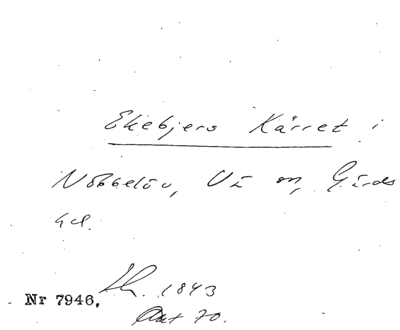 Ekebjers Kärret i
Nöbbelöv, Vä sn, Gärds
hd.
Nr 7946. Sk. 1843
Akt 70.